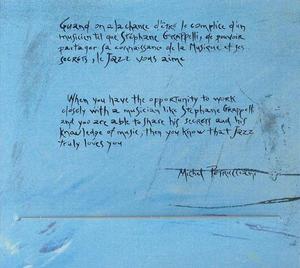 Quand on a la chance d'être le complice d'un
musicien tel que Stéphane Grappelli, de pouvoir
partager sa connaissance de la Musique et ses
secrets, le Jazz vous aime
When you have the opportunity to work
closely with a musician like Stephane Grappelli
and you are able to share his secrets and his
knowledge of music, then you know that Jazz
truly loves you
Michel Petrucciani